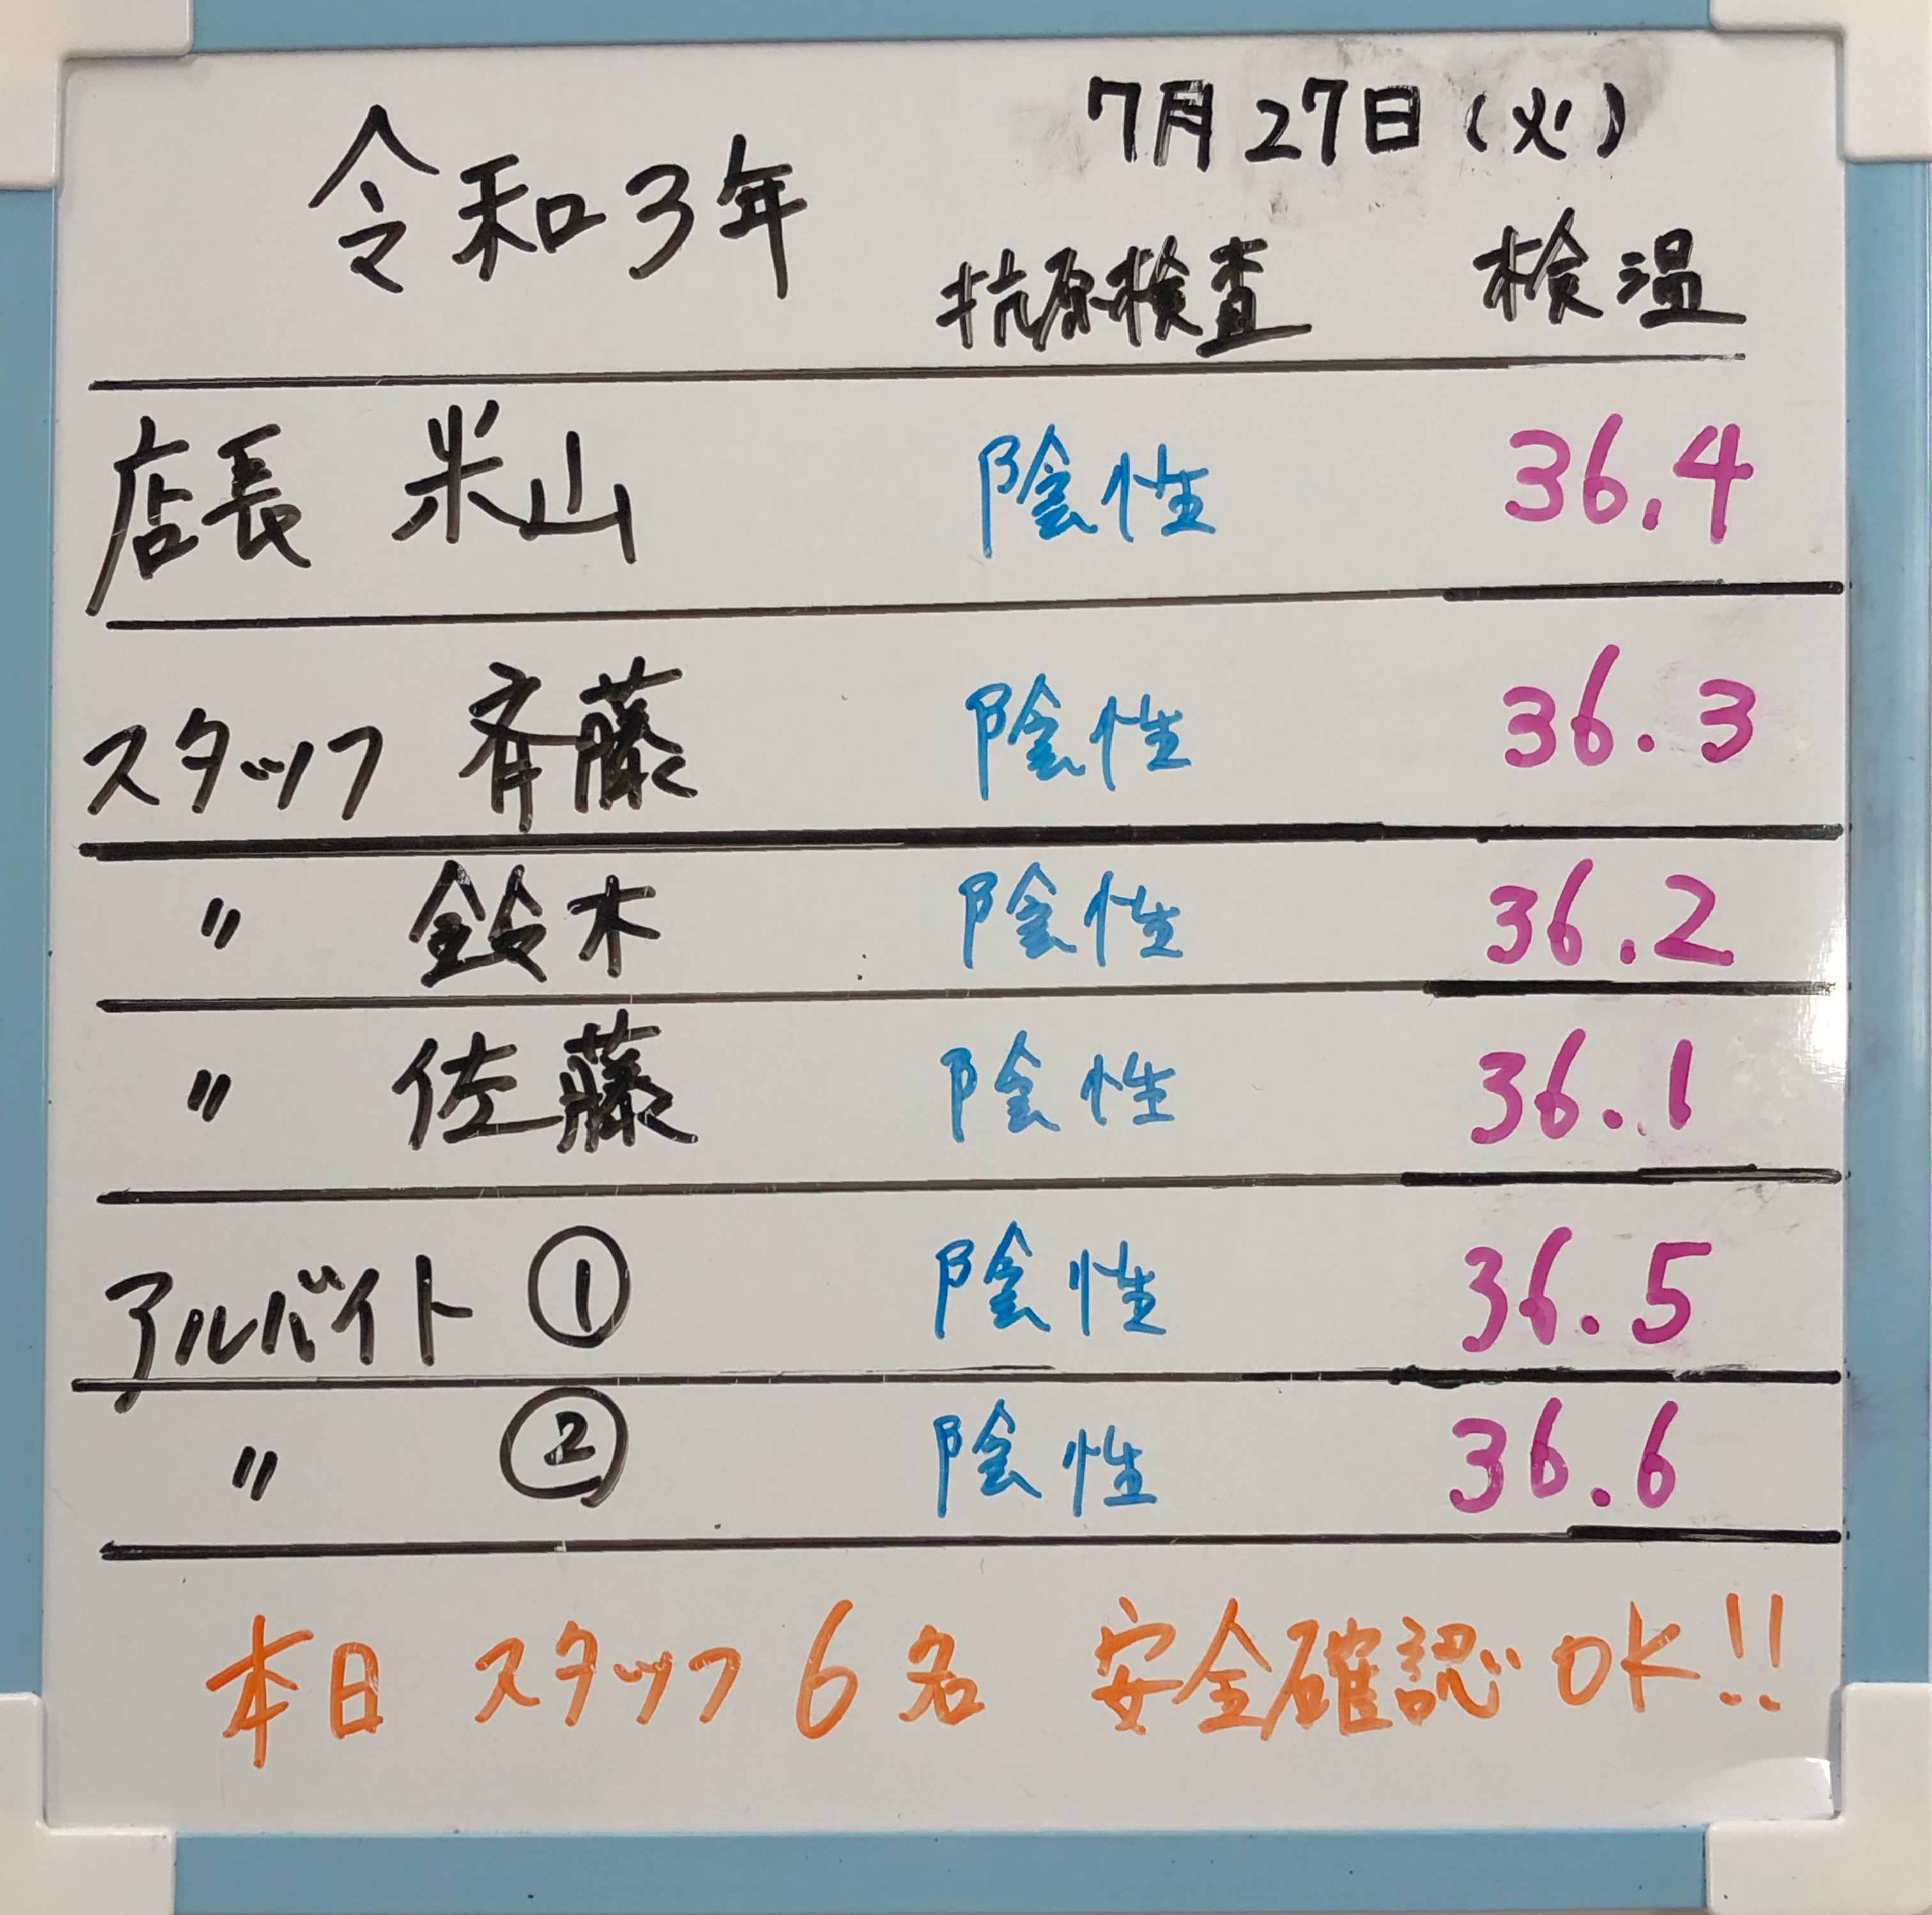 令和3年 7月27日(火)
抗原検査 検温
店長 米山 陰性 36.4
スタッフ 斉藤 陰性 36.3
〃 鈴木 陰性 36.2
〃 佐藤 陰性 36.1
アルバイト ① 陰性 36.5
〃 ② 陰性 36.6
本日 スタッフ 6名 安全確認 OK!!